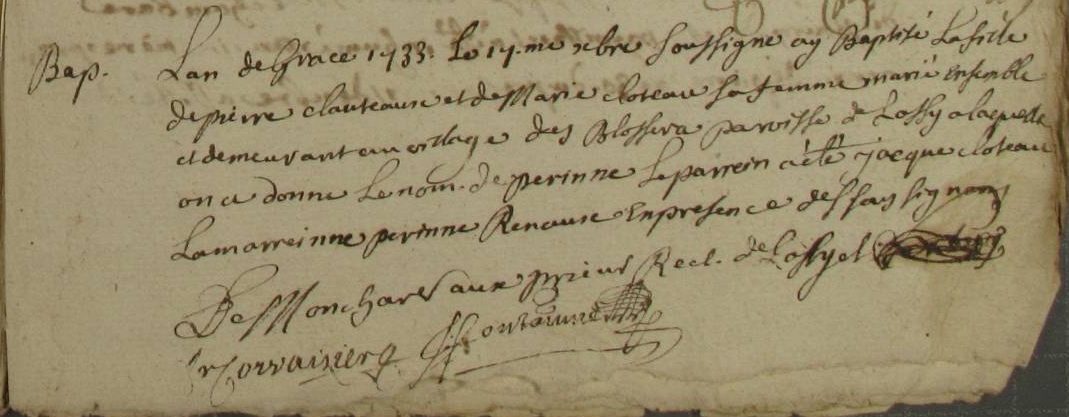 Bap. Lan de Grace 1733. Le 14.me xbre soussigne ay Baptisé La fille
de pierre clauteaux et de Marie cloteau sa femme marié Ensemble
et demeurant au vilage des Blossera paroisse de Lossy a laquelle
on a donne Le nom de perinne Le parrein a été jacque cloteau
La marreinne perinne Renaux En presence des soussignans
De Moncharvaux prieur Rect. de Lossy et
Corvaisier Fontaunne